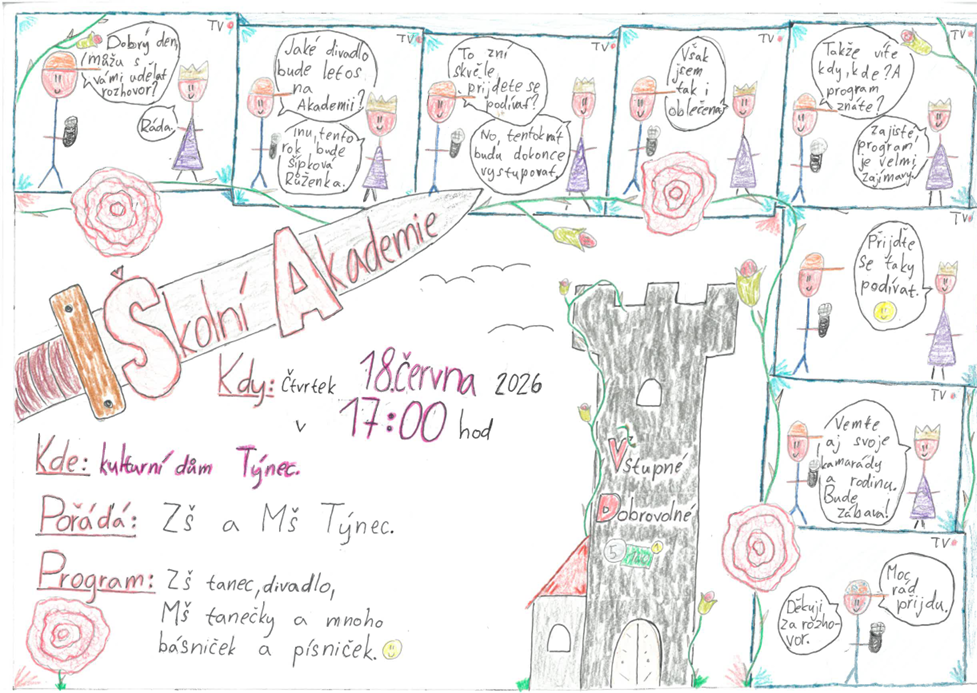 TV
Dobrý den,
můžu s
vámi udělat
rozhovor?
Ráda.
TV
Jaké divadlo
bude letos
na
Akademii?
inu, tento
rok bude
Šípková
Růženka.
TV
To zní
skvěle,
přijdete se
podívat?
No, tentokrát
budu dokonce
vystupovat.
TV
Však
jsem
tak i
oblečena.
TV
Takže víte
kdy, kde? A
program
znáte?
Zajisté,
program
je velmi
zajímavý.
TV
Přijďte
se taky
podívat.
TV
Vemte
aj svoje
kamarády
a rodinu.
Bude
zábava!
TV
Moc
rád
přijdu.
Děkuji
za rozho-
vor.
Školní Akademie
Kdy: čtvrtek 18. června 2026
v 17:00 hod
Kde: kulturní dům Týnec.
Pořádá: ZŠ a MŠ Týnec.
Program: ZŠ tanec, divadlo,
MŠ tanečky a mnoho
básniček a písniček.
Vstupné
Dobrovolné
5 100 1